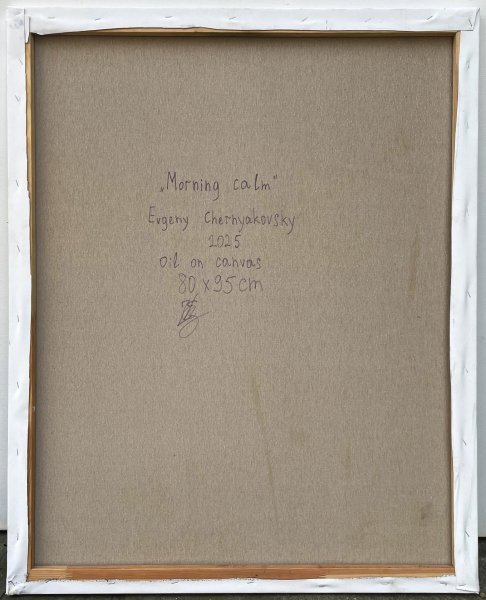 „Morning calm"
Evgeny Chernyakovsky
2025
oil on canvas
80 x 95 cm